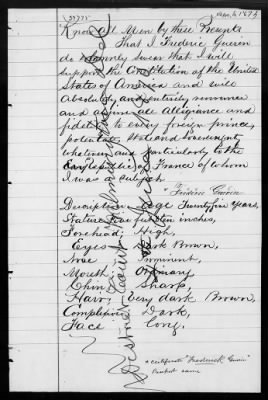 Know All Men by these Presents
That I Frederic Guerin
do solemnly swear that I will
support the Constitution of the United
States of America and will
absolutely and entirely renounce
and abjure all allegiance and
fidelity to every foreign prince,
potentate, State and Sovereignty
whatever and particularly to the
Republic of France of whom
I was a subject
Frédéric Guérin
Description, Age Twenty five Years,
Stature, five feet ten inches,
Forehead, High,
Eyes Dark Brown,
Nose Prominent,
Mouth, Ordinary
Chin Sharp,
Hair, Very dark Brown,
Complexion Dark,
Face Long.
* certificate "Frederick Guerin"
District Court